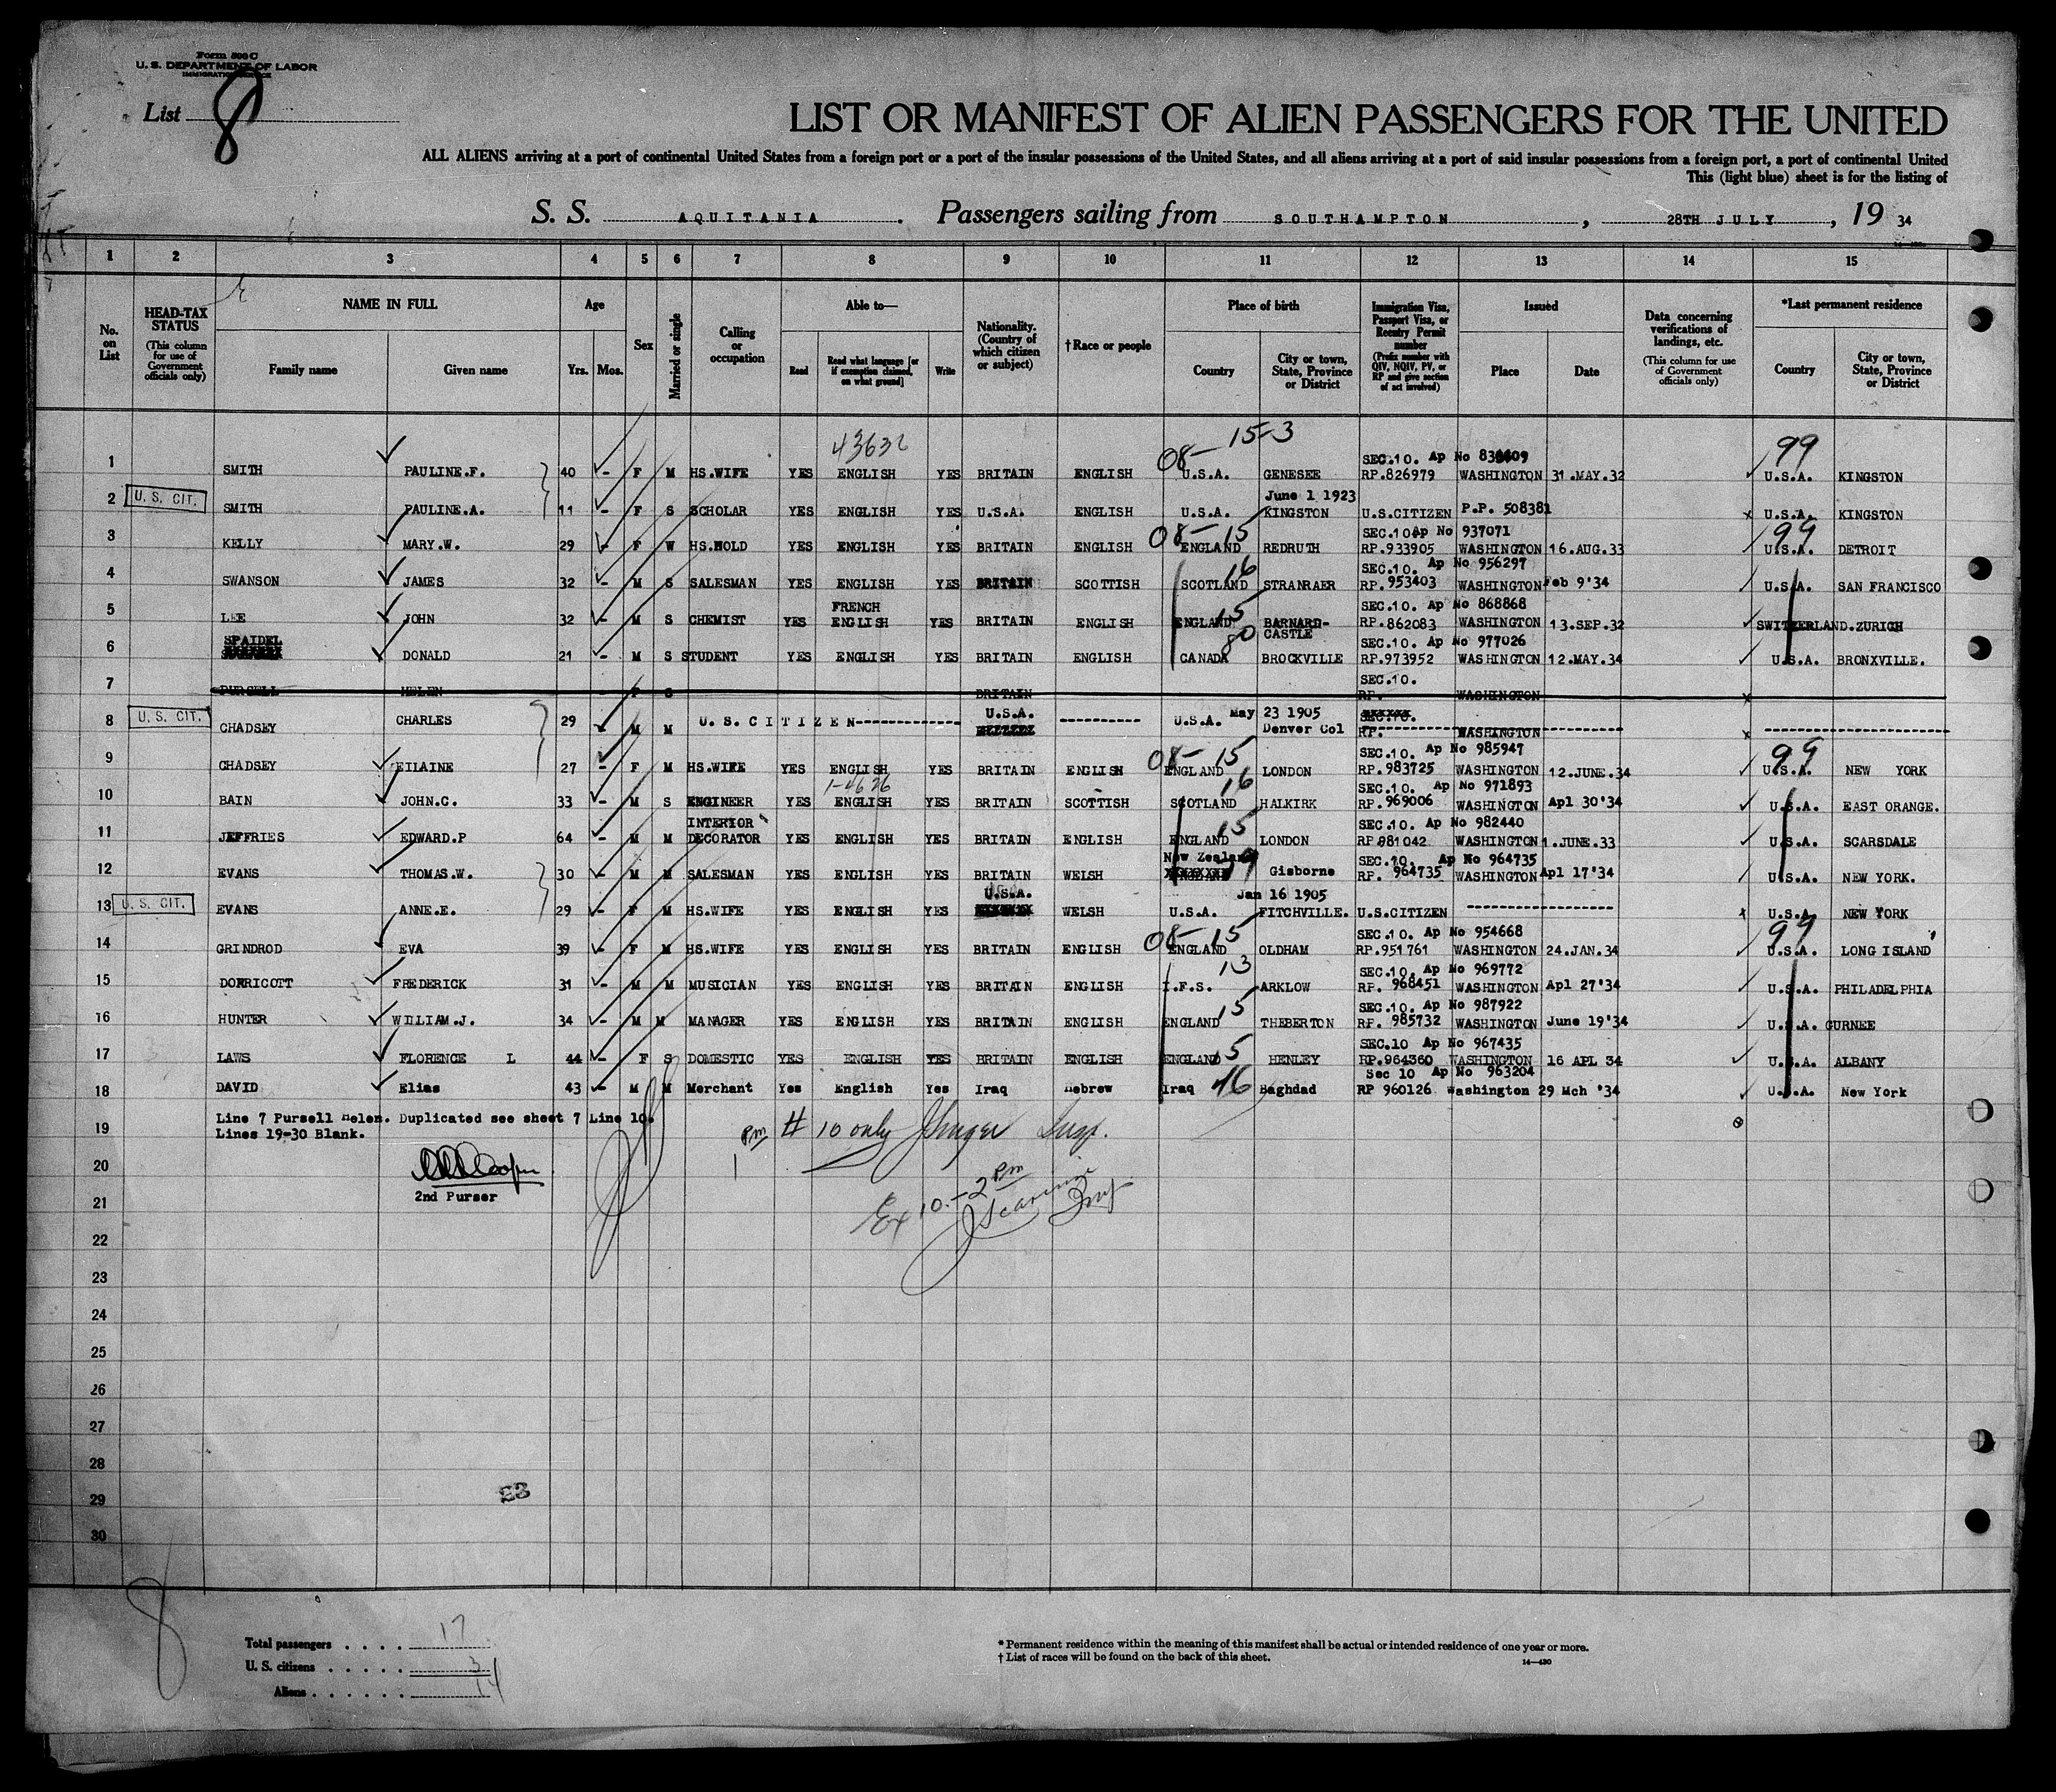 Form 500 C
U. S. DEPARTMENT OF LABOR
List 8
LIST OR MANIFEST OF ALIEN PASSENGERS FOR THE UNITED
ALL ALIENS arriving at a port of continental United States from a foreign port or a port of the insular possessions of the United States, and all aliens arriving at a port of said insular possessions from a foreign port, a port of continental United
This (light blue) sheet is for the listing of
S. S. AQUITANIA . Passengers sailing from SOUTHAMPTON , 28TH JULY , 19 34
1 2 3 4 5 6 7 8 9 10 11 12 13 14 15
No. on List
HEAD-TAX STATUS (This column for use of Government officials only)
NAME IN FULL Family name Given name
Age Yrs. Mos.
Sex
Married or single
Calling or occupation
Able to— Read Read what language [or if exemption claimed, on what ground] Write
Nationality. (Country of which citizen or subject)
†Race or people
Place of birth Country City or town, State, Province or District
Immigration Visa, Passport Visa, or Reentry Permit number (Prefix number with QIV, NQIV, PV, or RP and give section of act involved)
Issued Place Date
Data concerning verifications of landings, etc. (This column for use of Government officials only)
*Last permanent residence Country City or town, State, Province or District
43632 08- 15-3 99
SEC.10. Ap No
1 SMITH PAULINE.F. 40 - F M HS.WIFE YES ENGLISH YES BRITAIN ENGLISH U.S.A. GENESEE RP.826979 WASHINGTON 31.MAY.32 U.S.A. KINGSTON
June 1 1923
2 U. S. CIT. SMITH PAULINE.A. 11 - F S SCHOLAR YES ENGLISH YES U.S.A. ENGLISH U.S.A. KINGSTON U.S.CITIZEN P.P. 508381 U.S.A. KINGSTON
08- 15 SEC.10 Ap No 937071 99
3 KELLY MARY.W. 29 - F W HS.HOLD YES ENGLISH YES BRITAIN ENGLISH ENGLAND REDRUTH RP.933905 WASHINGTON 16.AUG.33 U.S.A. DETROIT
16 SEC.10. Ap No 956297
4 SWANSON JAMES 32 - M S SALESMAN YES ENGLISH YES BRITAIN SCOTTISH SCOTLAND STRANRAER RP.953403 WASHINGTON Feb 9'34 U.S.A. SAN FRANCISCO
FRENCH 15 SEC.10. Ap No 868868
5 LEE JOHN 32 - M S CHEMIST YES ENGLISH YES BRITAIN ENGLISH ENGLAND BARNARD-CASTLE RP.862083 WASHINGTON 13.SEP.32 SWITZERLAND.ZURICH
SPAIDEL 80 SEC.10. Ap No 977026
6 DONALD 21 - M S STUDENT YES ENGLISH YES BRITAIN ENGLISH CANADA BROCKVILLE RP.973952 WASHINGTON 12.MAY.34 U.S.A. BRONXVILLE.
SEC.10.
7 PURSELL HELEN - F S BRITAIN RP. WASHINGTON
U.S.A. May 23 1905
8 U. S. CIT. CHADSEY CHARLES 29 M M U.S.CITIZEN U.S.A. Denver Col SEC.10. RP. WASHINGTON
08- 15 SEC.10. Ap No 985947 99
9 CHADSEY EILAINE 27 - F M HS.WIFE YES ENGLISH YES BRITAIN ENGLISH ENGLAND LONDON RP.983725 WASHINGTON 12.JUNE.34 U.S.A. NEW YORK
16 SEC.10. Ap No 971893
10 BAIN JOHN.C. 33 - M S ENGINEER YES ENGLISH YES BRITAIN SCOTTISH SCOTLAND HALKIRK RP.969006 WASHINGTON Apl 30'34 U.S.A. EAST ORANGE.
INTERIOR 15 SEC.10. Ap No 982440
11 JEFFRIES EDWARD.P 64 - M M DECORATOR YES ENGLISH YES BRITAIN ENGLISH ENGLAND LONDON RP.981042 WASHINGTON 1.JUNE.33 U.S.A. SCARSDALE
New Zealand SEC.10. Ap No 964735
12 EVANS THOMAS.W. 30 - M M SALESMAN YES ENGLISH YES BRITAIN WELSH Gisborne RP. 964735 WASHINGTON Apl 17'34 U.S.A. NEW YORK.
U.S.A. Jan 16 1905
13 U. S. CIT. EVANS ANNE.E. 29 - F M HS.WIFE YES ENGLISH YES WELSH U.S.A. FITCHVILLE. U.S.CITIZEN U.S.A. NEW YORK
08- 15 SEC.10. Ap No 954668 99
14 GRINDROD EVA 39 - F M HS.WIFE YES ENGLISH YES BRITAIN ENGLISH ENGLAND OLDHAM RP.951761 WASHINGTON 24.JAN.34 U.S.A. LONG ISLAND
13 SEC.10. Ap No 969772
15 DORRICOTT FREDERICK 31 - M M MUSICIAN YES ENGLISH YES BRITAIN ENGLISH I.F.S. ARKLOW RP. 968451 WASHINGTON Apl 27'34 U.S.A. PHILADELPHIA
15 SEC.10. Ap No 987922
16 HUNTER WILLIAM.J. 34 - M M MANAGER YES ENGLISH YES BRITAIN ENGLISH ENGLAND THEBERTON RP. 985732 WASHINGTON June 19'34 U.S.A. GURNEE
SEC.10 Ap No 967435
17 LAWS FLORENCE L 44 - F S DOMESTIC YES ENGLISH YES BRITAIN ENGLISH ENGLAND 15 HENLEY RP.964360 WASHINGTON 16 APL 34 U.S.A. ALBANY
Sec 10 Ap No 963204
18 DAVID Elias 43 - M M Merchant Yes English Yes Iraq Hebrew Iraq 46 Baghdad RP 960126 Washington 29 Mch '34 U.S.A. New York
Line 7 Pursell Helen. Duplicated see sheet 7 Line 10.
19 Lines 19-30 Blank.
pm # 10 only Insp.
20
2nd Purser
Ex 10 - 2 Pm
21
22
23
24
25
26
27
28
29
23
30
8
Total passengers . . . . 17
U. S. citizens . . . . . 3
Aliens . . . . . . 14
* Permanent residence within the meaning of this manifest shall be actual or intended residence of one year or more.
† List of races will be found on the back of this sheet.
14—430